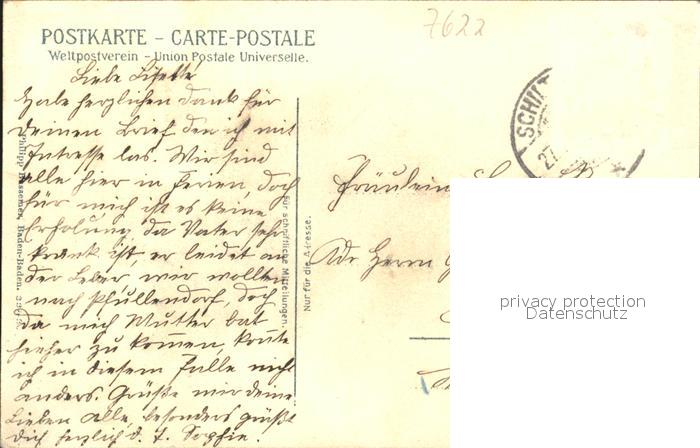 7622
POSTKARTE – CARTE-POSTALE
Weltpostverein – Union Postale Universelle.
Liebe Lisette
Habe herzlichen dank für
deinen Brief den ich mit
Intresse las. Wir sind
alle hier in Ferien, doch
für mich ist es keine
Erholung, da Vater sehr
krank ist, er leidet an
der Leber, wir wollten
nach Pfullendorf, doch
da mich Mutter bat
hieher zu kommen, konnte
ich in diesem Falle nicht
anders. Grüße mir deine
Lieben alle, besonders grüßt
dich herzlich d. T. Sophie.
Philipp Bussemer, Baden-Baden.
Für schriftliche Mitteilungen.
Nur für die Adresse.
SCHILT
27
Fräulein
Adr Herrn
privacy protection
Datenschutz